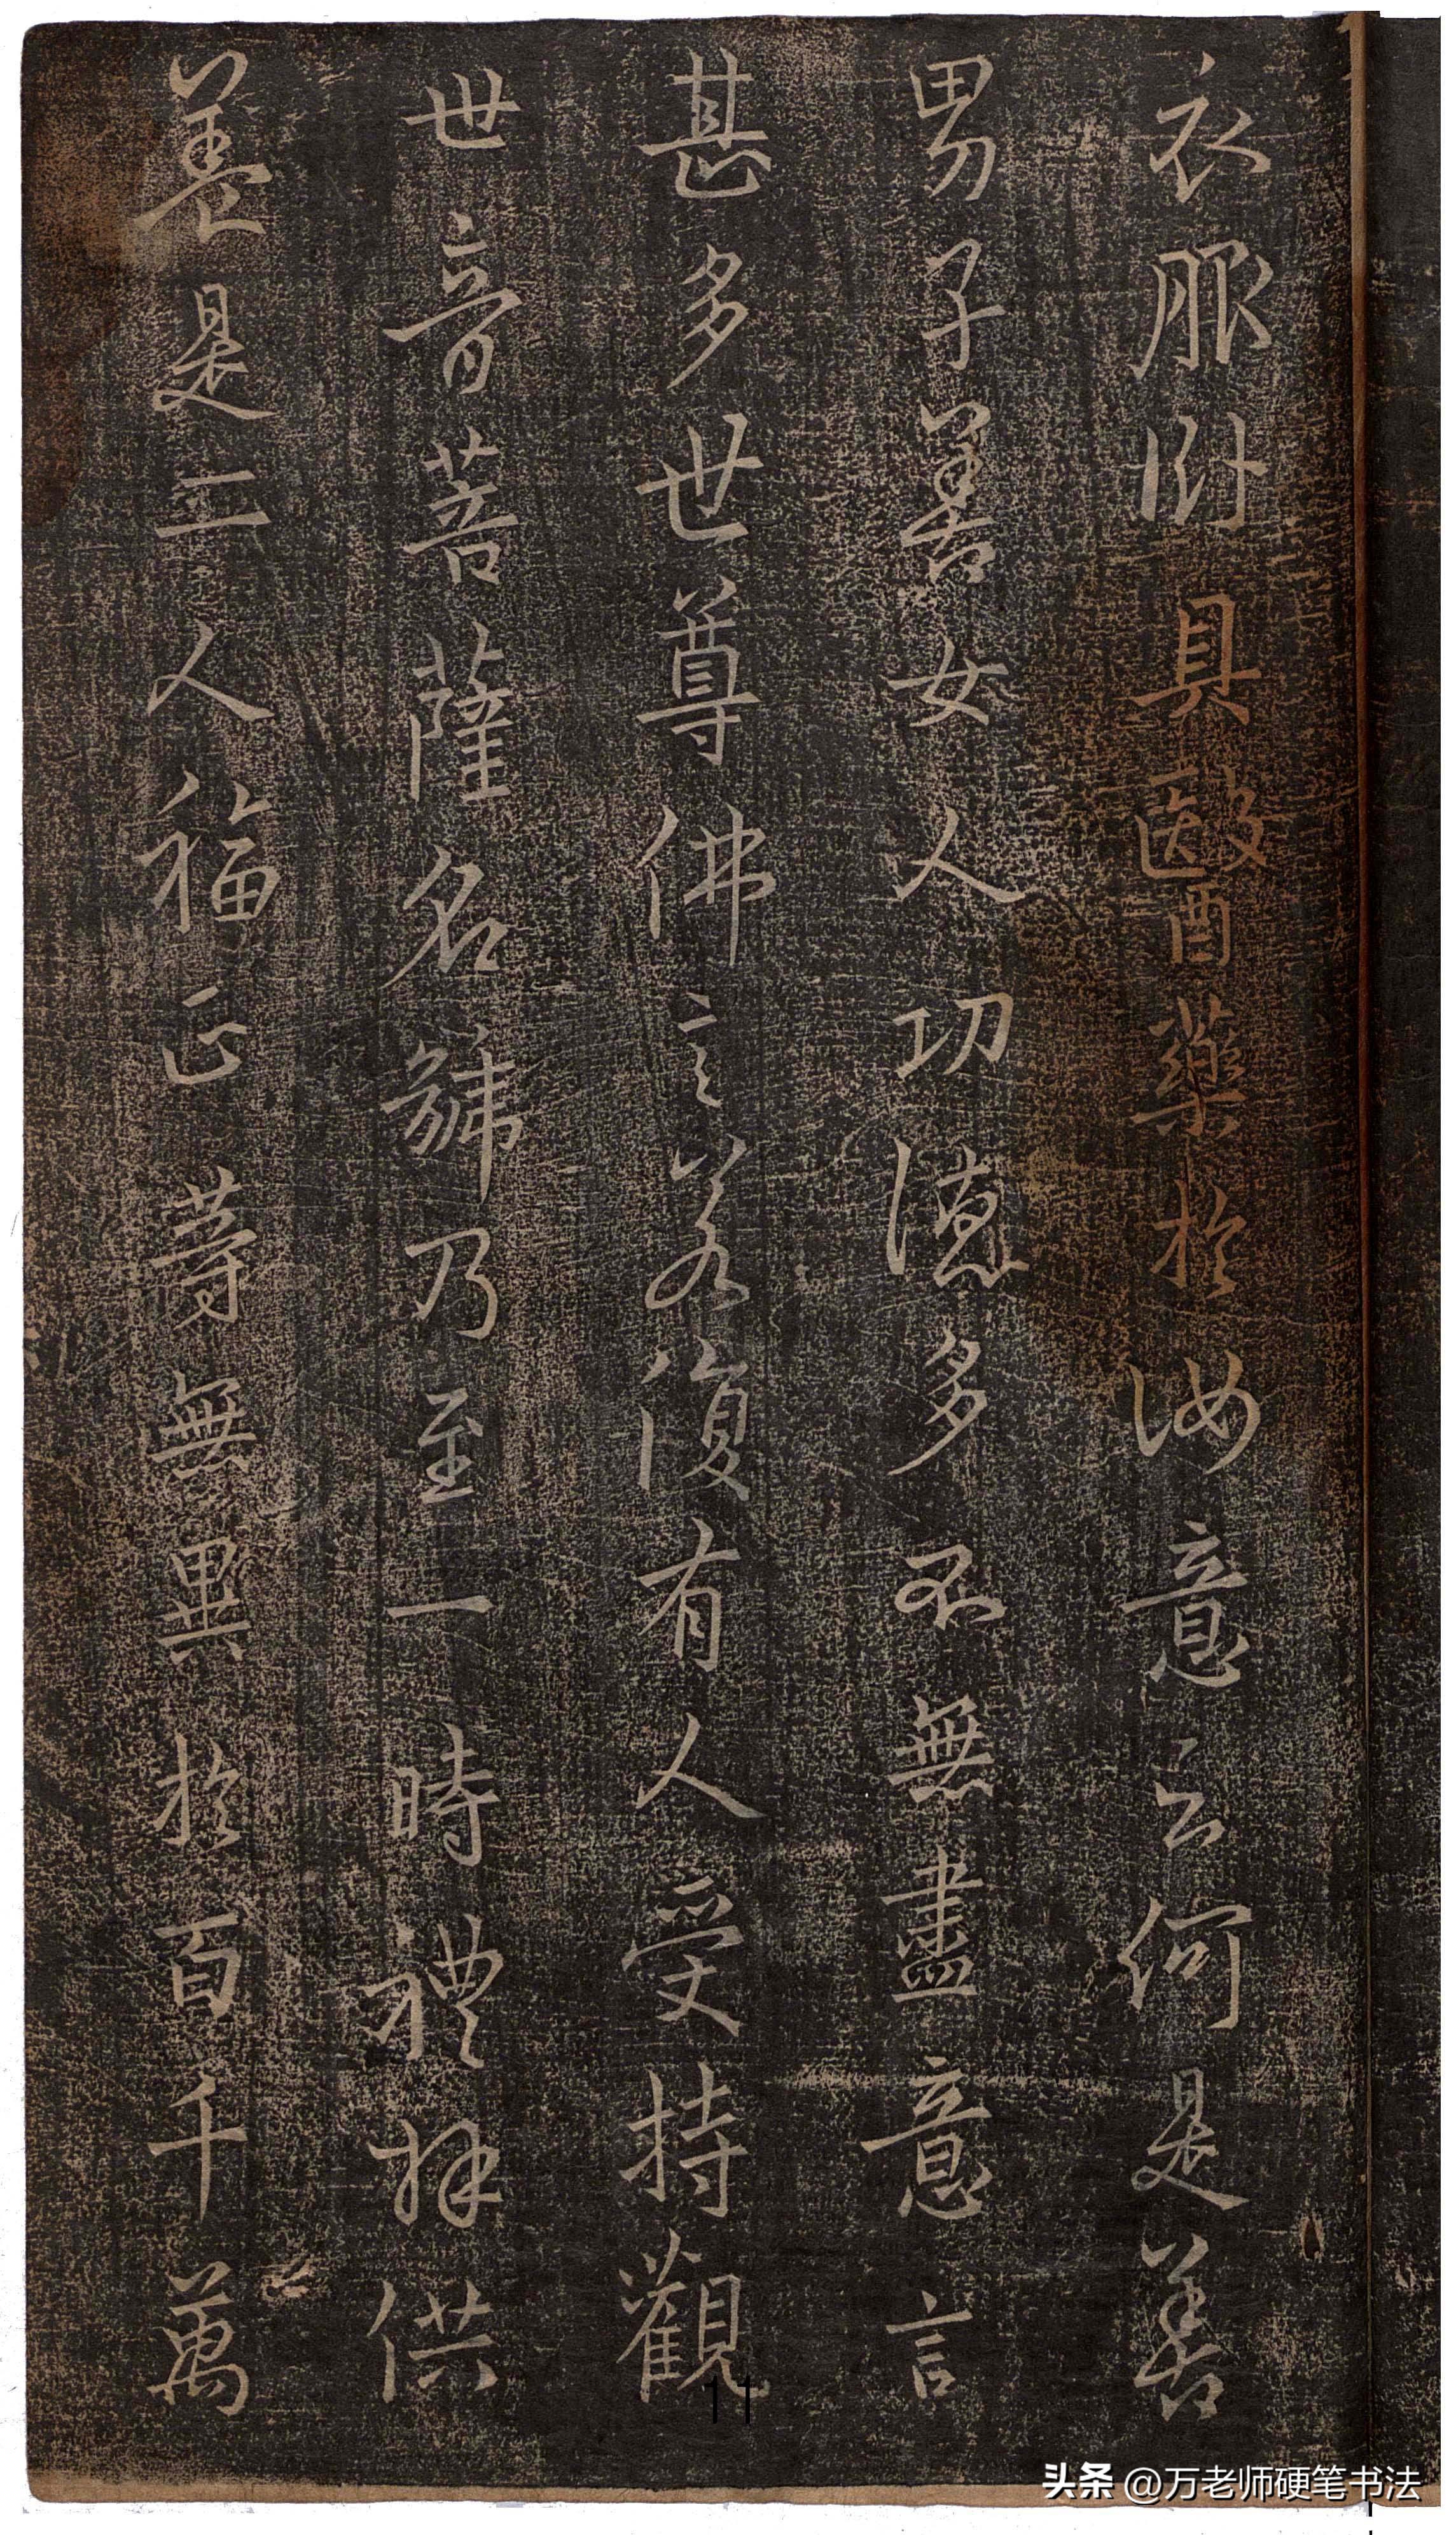 衣服卧具醫藥於汝意云何是善
男子善女人功德多不無盡意言
甚多世尊佛言若復有人受持觀
世音菩薩名號乃至一時禮拜供
養是二人福正等無異於百千萬
11
头条 @万老师硬笔书法